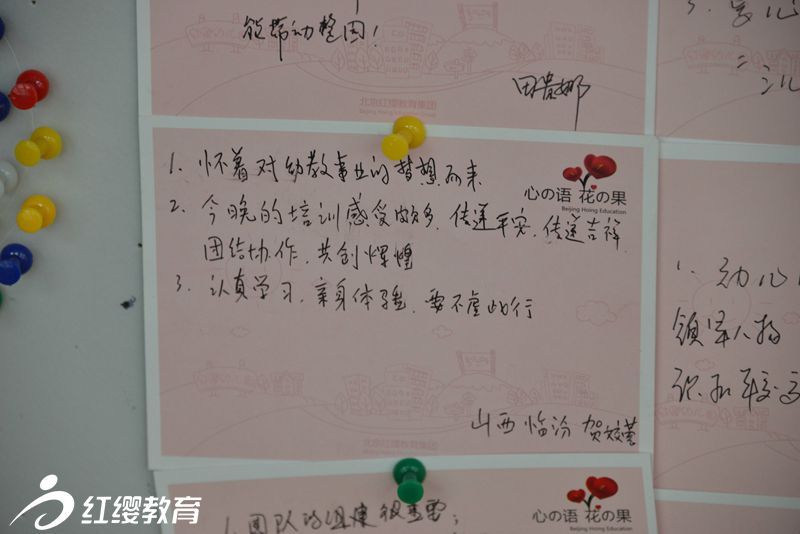 能带动整团!
田贵娜
北京红缨教育集团
3.
1. 怀着对幼教事业的梦想而来
心の语 花の果
Beijing Hoing Education
2. 今晚的培训感受颇多. 传递平安. 传递吉祥
团结协作. 共创辉煌
3. 认真学习. 亲身体验. 要不虚此行
山西 临汾 贺
1. 幼儿
领军人物
北京红缨教育集团
1. 团队的组建很重要;
心の语 花の果
Beijing Hoing Education
红缨教育